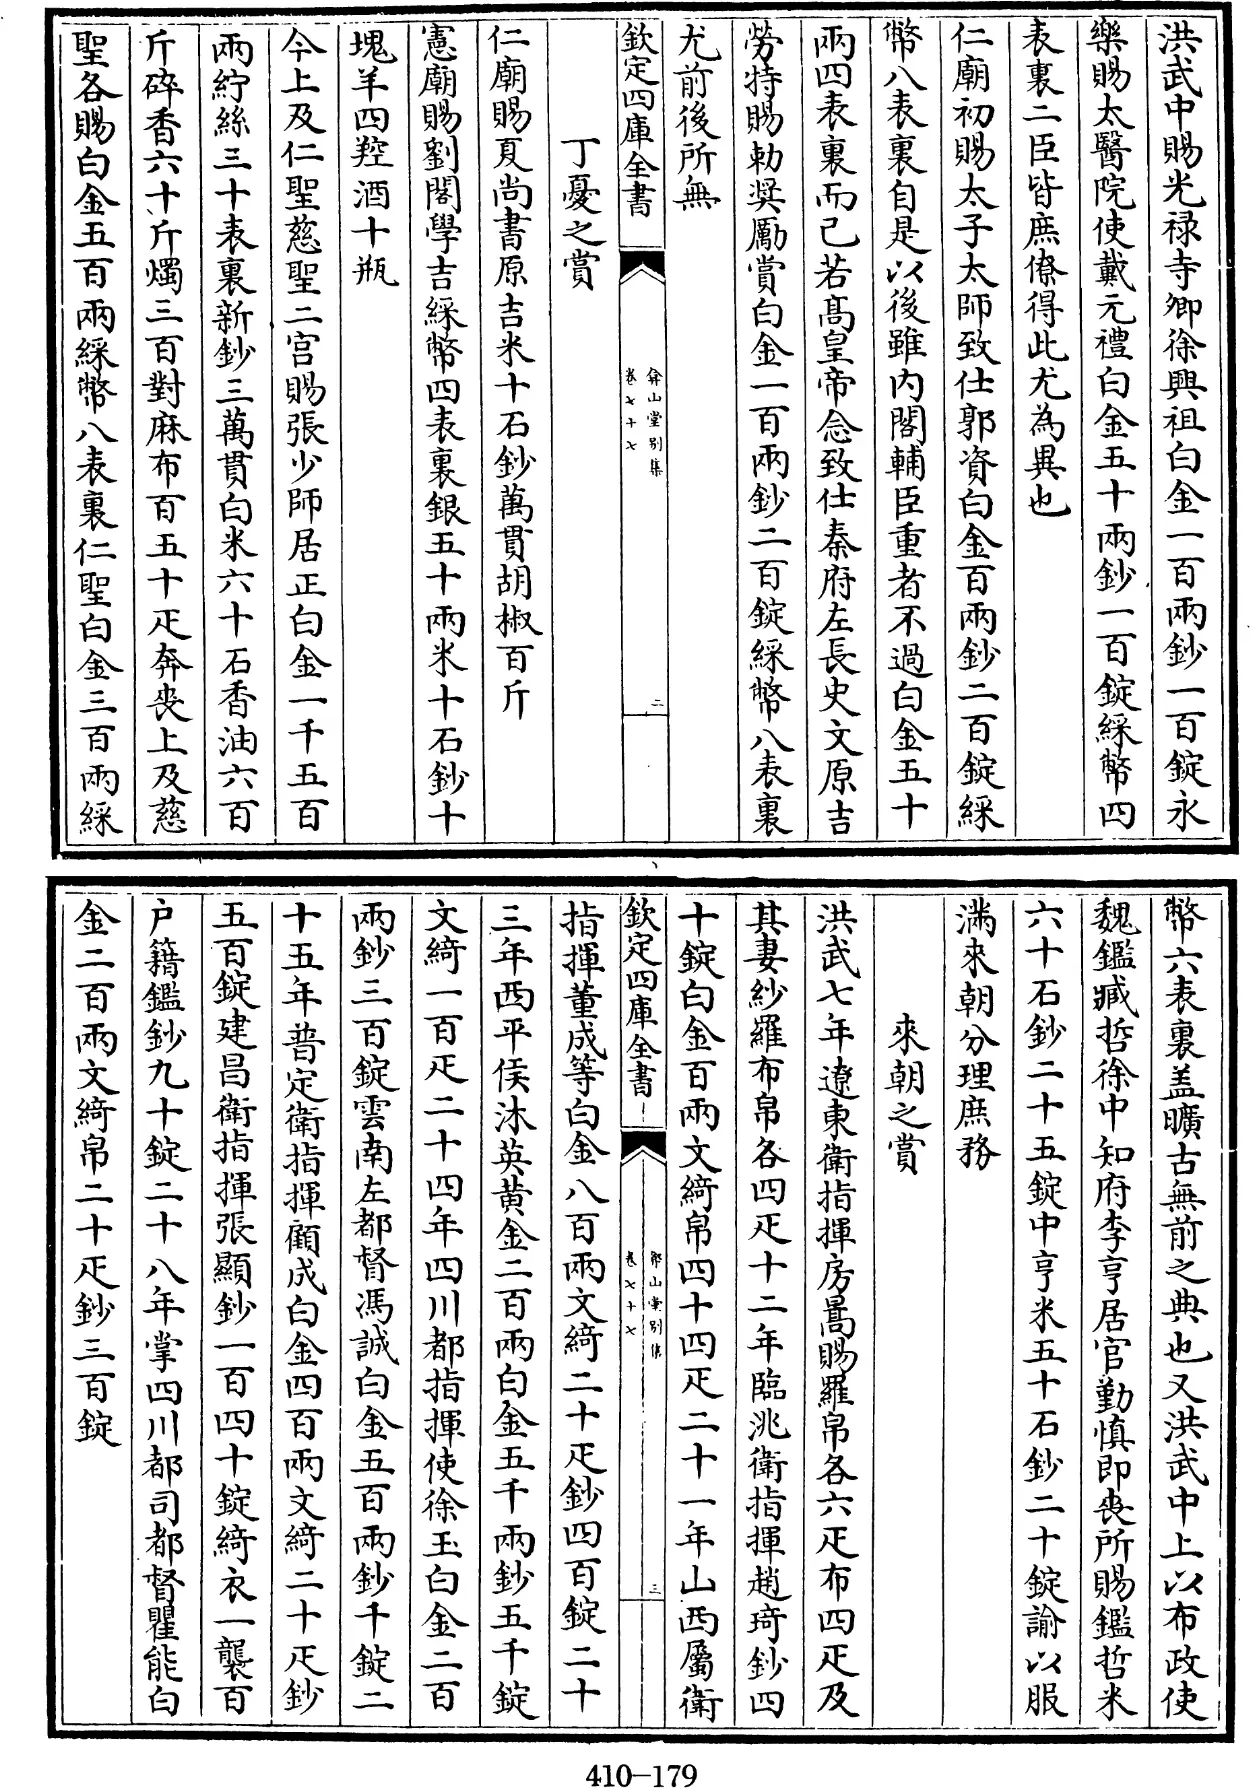 洪武中賜光禄寺卿徐興祖白金一百兩鈔一百錠永
樂賜太醫院使戴元禮白金五十兩鈔一百錠綵幣四
表裏二臣皆庶僚得此尤為異也
仁廟初賜太子太師致仕郭資白金百兩鈔二百錠綵
幣八表裏自是以後雖内閣輔臣重者不過白金五十
兩四表裏而已若髙皇帝念致仕秦府左長史文原吉
勞特賜勅奨勵賞白金一百兩鈔二百錠綵幣八表裏
尤前後所無
欽定四庫全書
弇山堂别集
卷七十七
二
丁憂之賞
仁廟賜夏尚書原吉米十石鈔萬貫胡椒百斤
憲廟賜劉閣學吉綵幣四表裏銀五十兩米十石鈔十
塊羊四羫酒十瓶
今上及仁聖慈聖二宫賜張少師居正白金一千五百
兩紵絲三十表裏新鈔三萬貫白米六十石香油六百
斤碎香六十斤燭三百對麻布百五十疋奔喪上及慈
聖各賜白金五百兩綵幣八表裏仁聖白金三百兩綵
幣六表裏盖曠古無前之典也又洪武中上以布政使
魏鑑臧哲徐中知府李亨居官勤慎即喪所賜鑑哲米
六十石鈔二十五錠中亨米五十石鈔二十錠諭以服
滿來朝分理庶務
來朝之賞
洪武七年遼東衛指揮房暠賜羅帛各六疋布四疋及
其妻紗羅布帛各四疋十二年臨洮衛指揮趙琦鈔四
十錠白金百兩文綺帛四十四疋二十一年山西屬衛
欽定四庫全書
弇山堂别集
卷七十七
三
指揮董成等白金八百兩文綺二十疋鈔四百錠二十
三年西平侯沐英黄金二百兩白金五千兩鈔五千錠
文綺一百疋二十四年四川都指揮使徐玉白金二百
兩鈔三百錠雲南左都督馮誠白金五百兩鈔千錠二
十五年普定衛指揮顧成白金四百兩文綺二十疋鈔
五百錠建昌衛指揮張顯鈔一百四十錠綺衣一襲百
户籍鑑鈔九十錠二十八年掌四川都司都督瞿能白
金二百兩文綺帛二十疋鈔三百錠
410-179